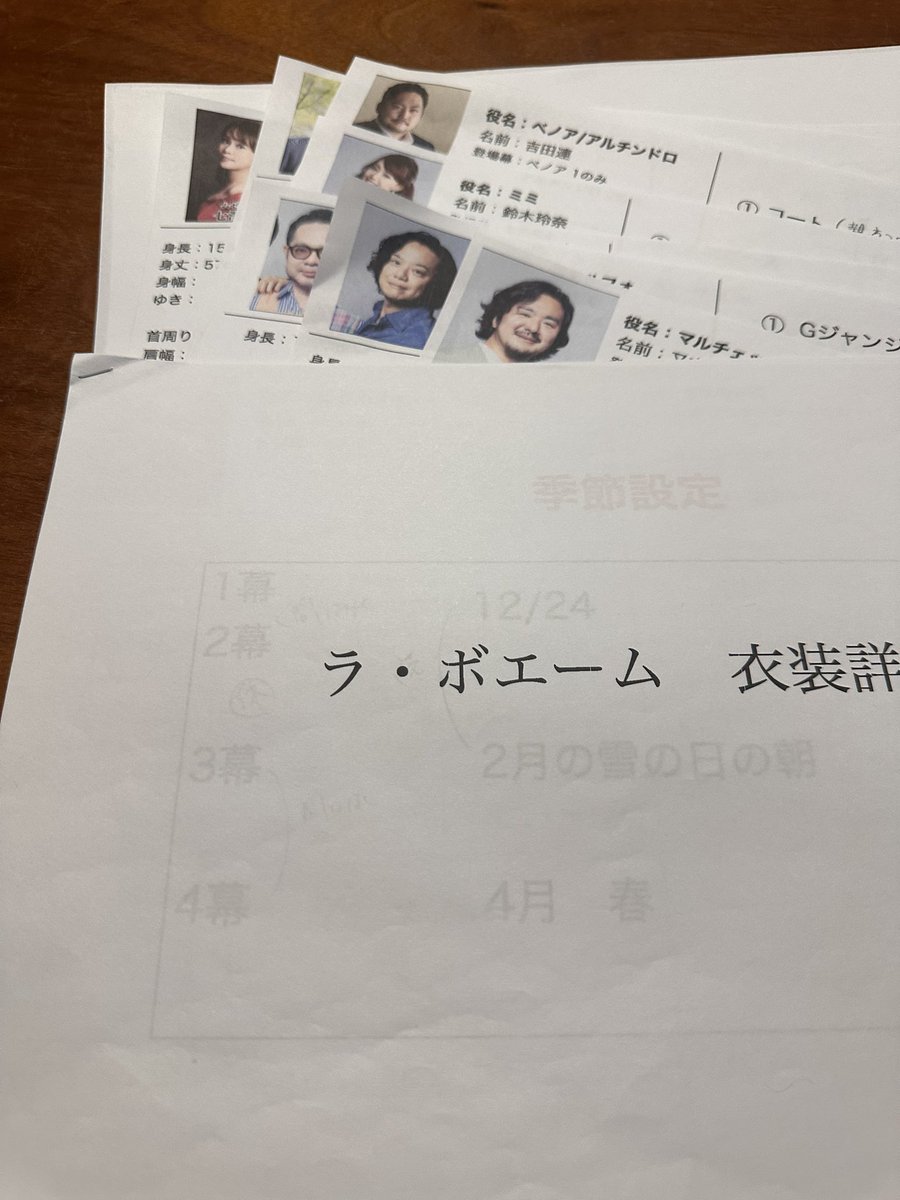 役名：ベノア/アルチンドロ
名前：吉田連
登場幕：ベノア 1のみ
① コート
役名：ミミ
名前：鈴木玲奈
身長：15
身丈：57
身幅：
ゆき：
首周り
肩幅：
身長：
身長
役名：マルチェ
名前：
① Gジャン
季節設定
1幕
12/24
2幕
ラ・ボエーム 衣装詳
3幕
2月の雪の日の朝
4幕
4月 春